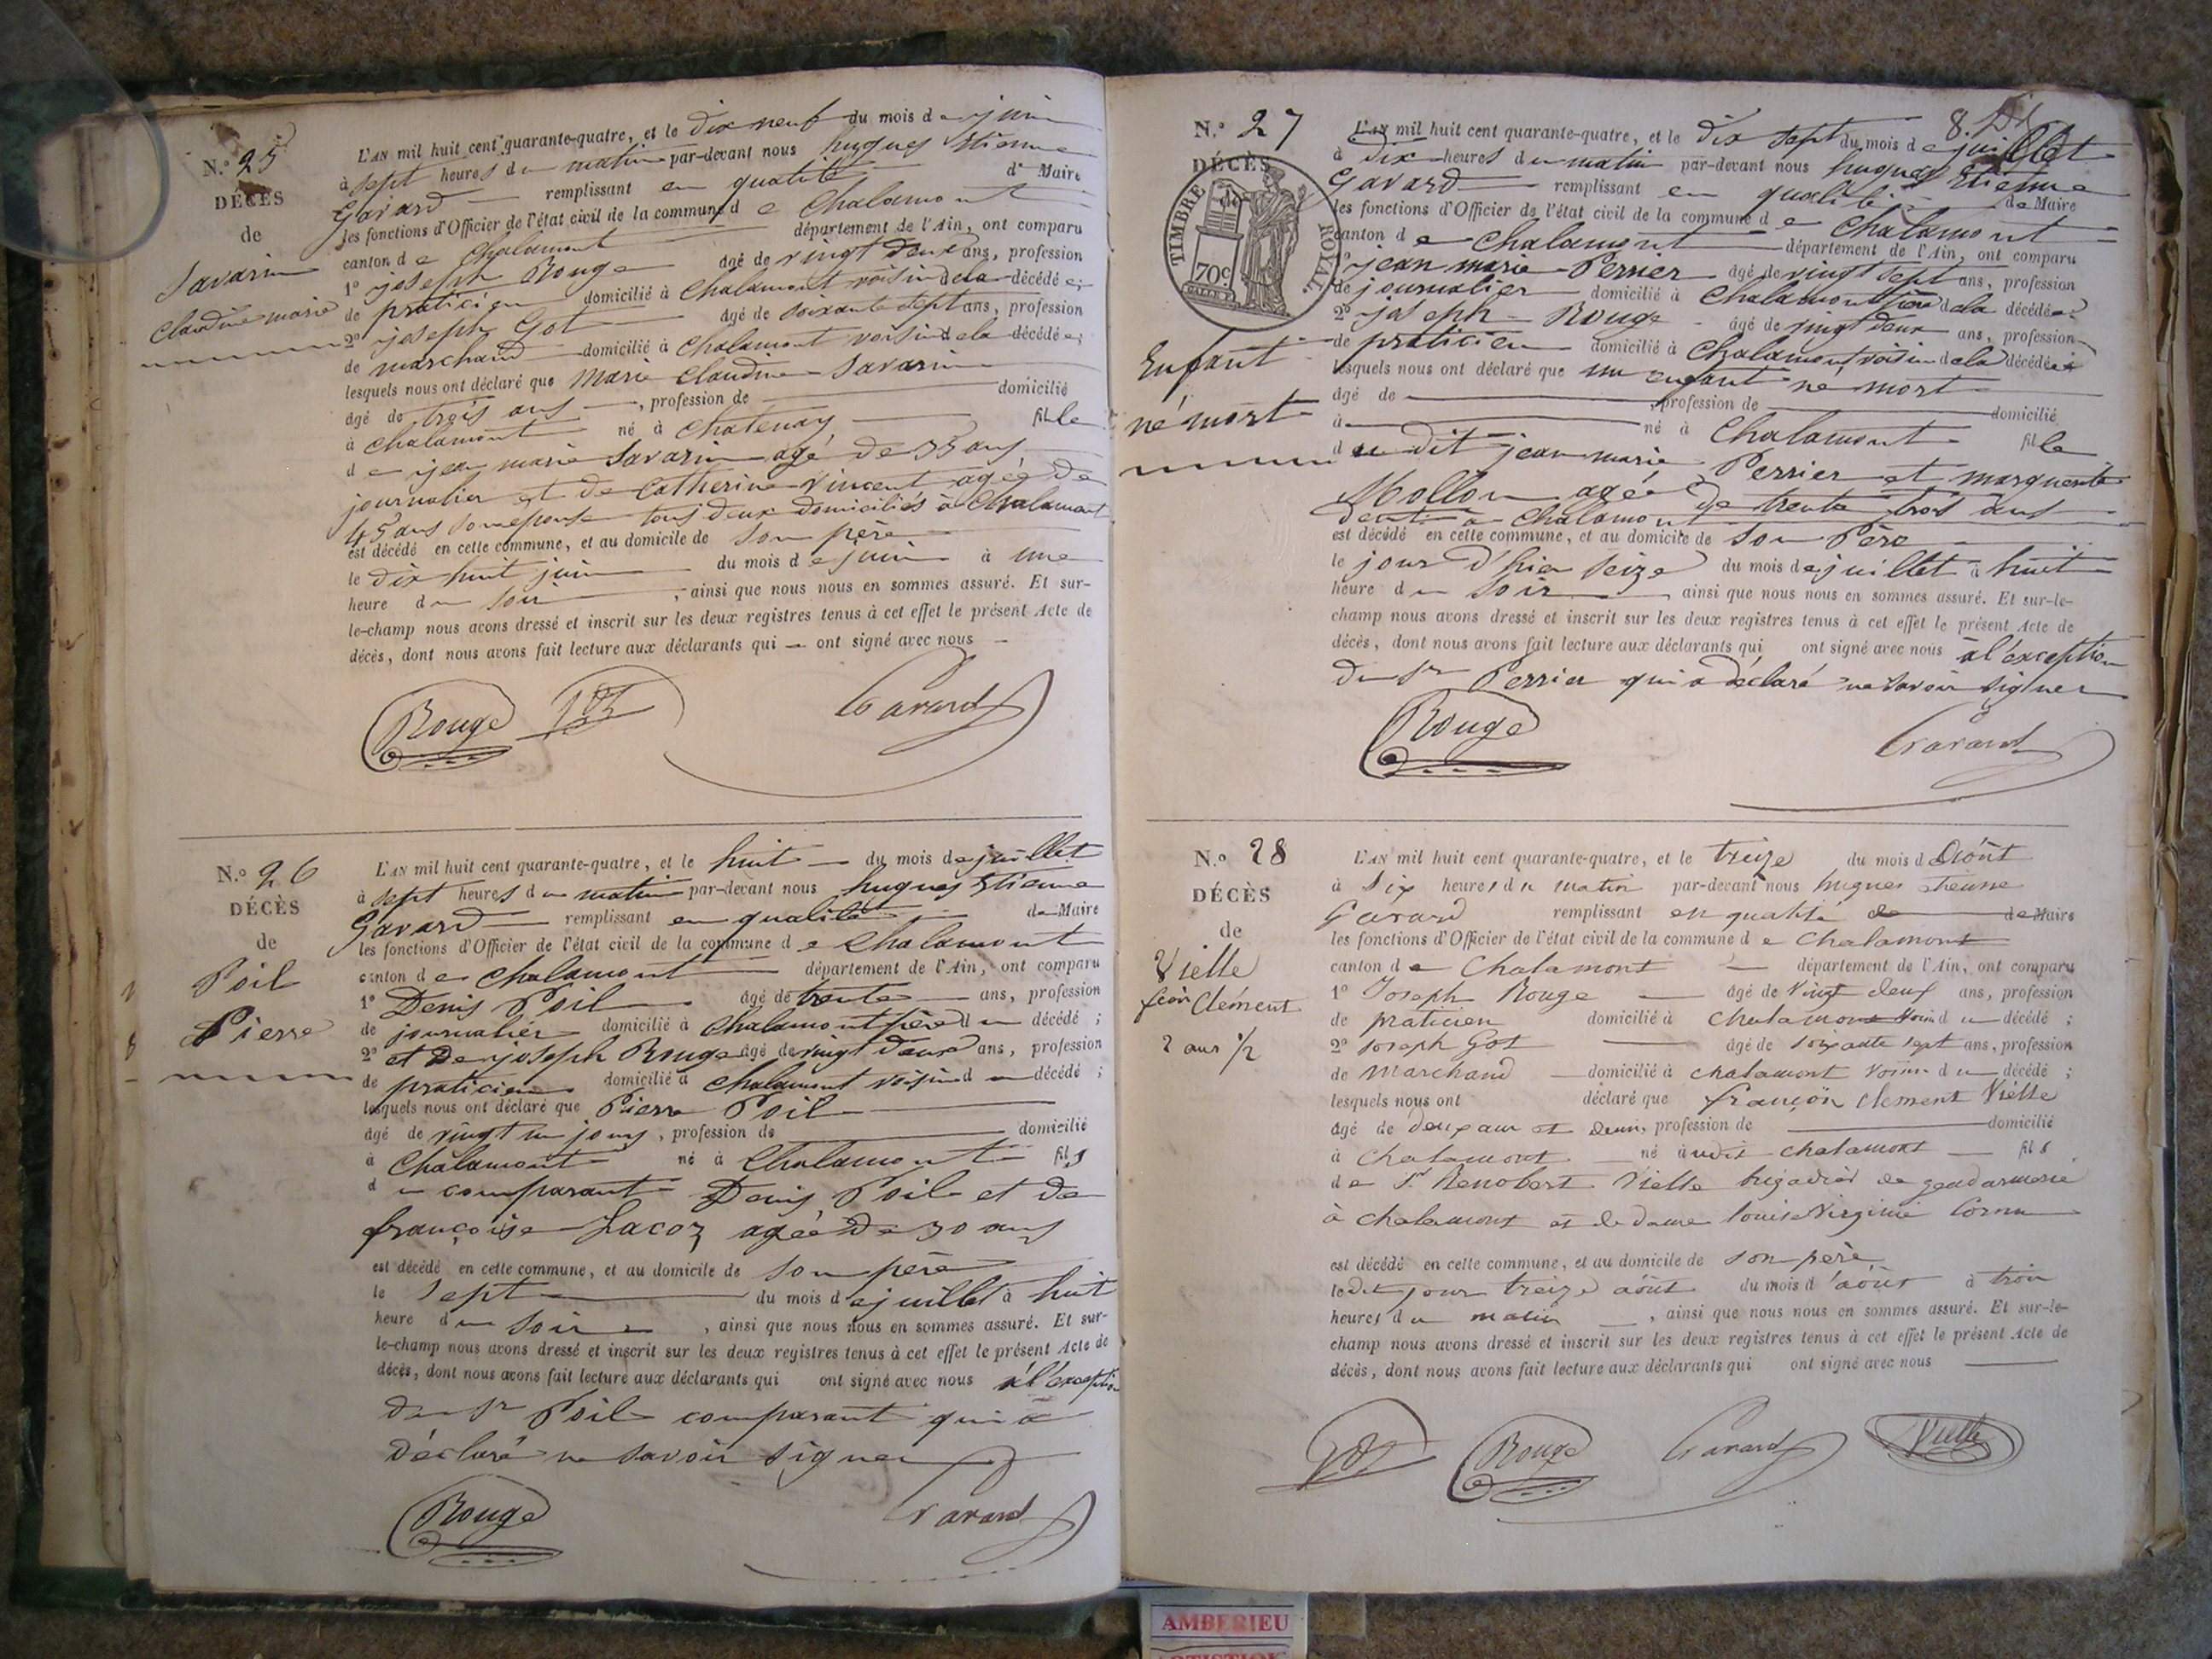 N.º 25
DÉCÈS
de
Savarin
Claudine marie
L'AN mil huit cent quarante-quatre, et le dix neuf du mois de juin
à sept heures du matin par-devant nous hugues Etienne
Gavard remplissant en qualité de Maire
les fonctions d'Officier de l'état civil de la commune de Chalamont
canton de Chalamont département de l'Ain, ont comparu
1º joseph Rouge âgé de vingt deux ans, profession
de praticien domicilié à Chalamont voisin de la décédée;
2º joseph Got âgé de soixante sept ans, profession
de marchand domicilié à Chalamont voisin de la décédée;
lesquels nous ont déclaré que Marie Claudine Savarin
âgé de trois ans, profession de domicilié
à Chalamont né à Chatenay fille
de jean marie Savarin agé de 35 ans
journalier et de Catherine Vincent agée de
45 ans son epouse tous deux domiciliés à Chalamont
est décédé en cette commune, et au domicile de son père
le dix huit juin du mois de juin à une
heure du soir, ainsi que nous nous en sommes assuré. Et sur-
le-champ nous avons dressé et inscrit sur les deux registres tenus à cet effet le présent Acte de
décès, dont nous avons fait lecture aux déclarants qui ont signé avec nous
Rouge Got Gavard
N.º 26
DÉCÈS
de
Poil
Pierre
L'AN mil huit cent quarante-quatre, et le huit du mois de juillet
à sept heures du matin par-devant nous hugues Etienne
Gavard remplissant en qualité de Maire
les fonctions d'Officier de l'état civil de la commune de Chalamont
canton de Chalamont département de l'Ain, ont comparu
1º Denis Poil âgé de trente ans, profession
de journalier domicilié à Chalamont père du décédé;
2º et de joseph Rouge âgé de vingt deux ans, profession
de praticien domicilié à Chalamont voisin du décédé;
lesquels nous ont déclaré que Pierre Poil
âgé de vingt un jours, profession de domicilié
à Chalamont né à Chalamont fils
du comparant Denis Poil et de
françoise Lacoz agée de 30 ans
est décédé en cette commune, et au domicile de son père
le sept du mois de juillet à huit
heure du soir, ainsi que nous nous en sommes assuré. Et sur-
le-champ nous avons dressé et inscrit sur les deux registres tenus à cet effet le présent Acte de
décès, dont nous avons fait lecture aux déclarants qui ont signé avec nous à l'exception
du Sr Poil comparant qui a
déclaré ne savoir signer
Rouge Gavard
8.
N.º 27
DÉCÈS
TIMBRE ROYAL
70c
Enfant
né mort
L'AN mil huit cent quarante-quatre, et le dix sept du mois de juillet
à dix heures du matin par-devant nous hugues Etienne
Gavard remplissant en qualité de Maire
les fonctions d'Officier de l'état civil de la commune de Chalamont
canton de Chalamont département de l'Ain, ont comparu
1º jean marie Perrier âgé de vingt sept ans, profession
de journalier domicilié à Chalamont père de la décédée;
2º joseph Rouge âgé de vingt deux ans, profession
de praticien domicilié à Chalamont voisin de la décédée;
lesquels nous ont déclaré que un enfant né mort
âgé de, profession de domicilié
à né à Chalamont fille
du dit jean marie Perrier et marguerite
Mollon agée de trente trois ans
à Chalamont
est décédé en cette commune, et au domicile de son Père
le jour d'hier seize du mois de juillet à huit
heure du soir, ainsi que nous nous en sommes assuré. Et sur-le-
champ nous avons dressé et inscrit sur les deux registres tenus à cet effet le présent Acte de
décès, dont nous avons fait lecture aux déclarants qui ont signé avec nous à l'exception
du Sr Perrier qui a déclaré ne savoir signer
Rouge Gavard
N.º 28
DÉCÈS
de
Vielle
Clément
2 ans 1/2
L'AN mil huit cent quarante-quatre, et le treize du mois d'Août
à Six heures du matin par-devant nous hugues etienne
Gavard remplissant en qualité de de Maire
les fonctions d'Officier de l'état civil de la commune de Chalamont
canton de Chalamont département de l'Ain, ont comparu
1º Joseph Rouge âgé de vingt deux ans, profession
de praticien domicilié à Chalamont voisin du décédé;
2º Joseph Got âgé de soixante sept ans, profession
de Marchand domicilié à chalamont voisin du décédé;
lesquels nous ont déclaré que françois Clement Vielle
âgé de deux ans et demi, profession de domicilié
à Chalamont né audit chalamont fils
de Sr Renobert Vielle brigadier de gendarmerie
à chalamont et de dame louise Virginie Cornu
est décédé en cette commune, et au domicile de son père
ledit jour treize août du mois d'août à trois
heures du matin, ainsi que nous nous en sommes assuré. Et sur-le-
champ nous avons dressé et inscrit sur les deux registres tenus à cet effet le présent Acte de
décès, dont nous avons fait lecture aux déclarants qui ont signé avec nous
Got Rouge Gavard Vielle
AMBERIEU